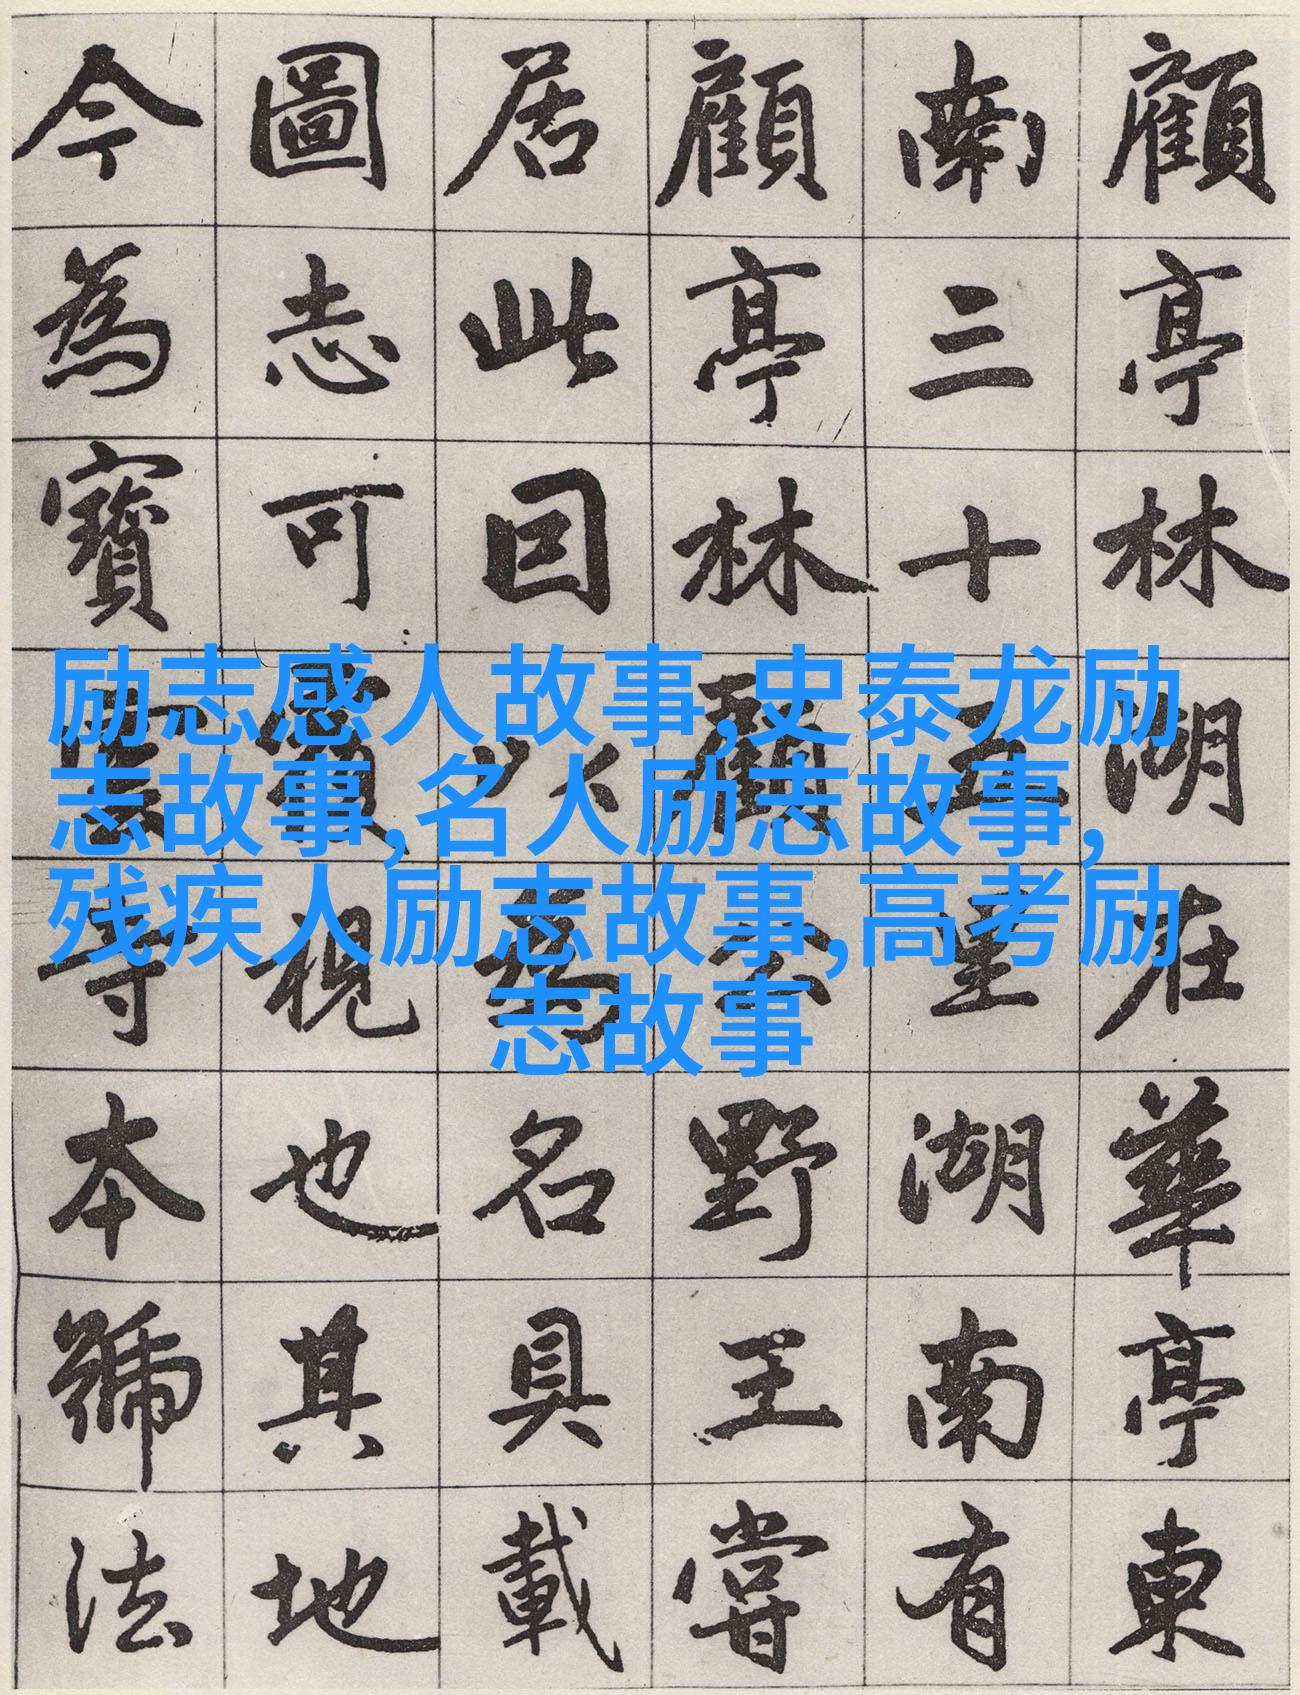 顧亭林湖在華亭東
南三十五里湖南有
顧亭林顧公野王嘗
居此囙以為名具載
圖志可覆視也其地
今為寶雲寺本號法
励志感人故事,史泰龙励
志故事,名人励志故事,
残疾人励志故事,高考励
志故事